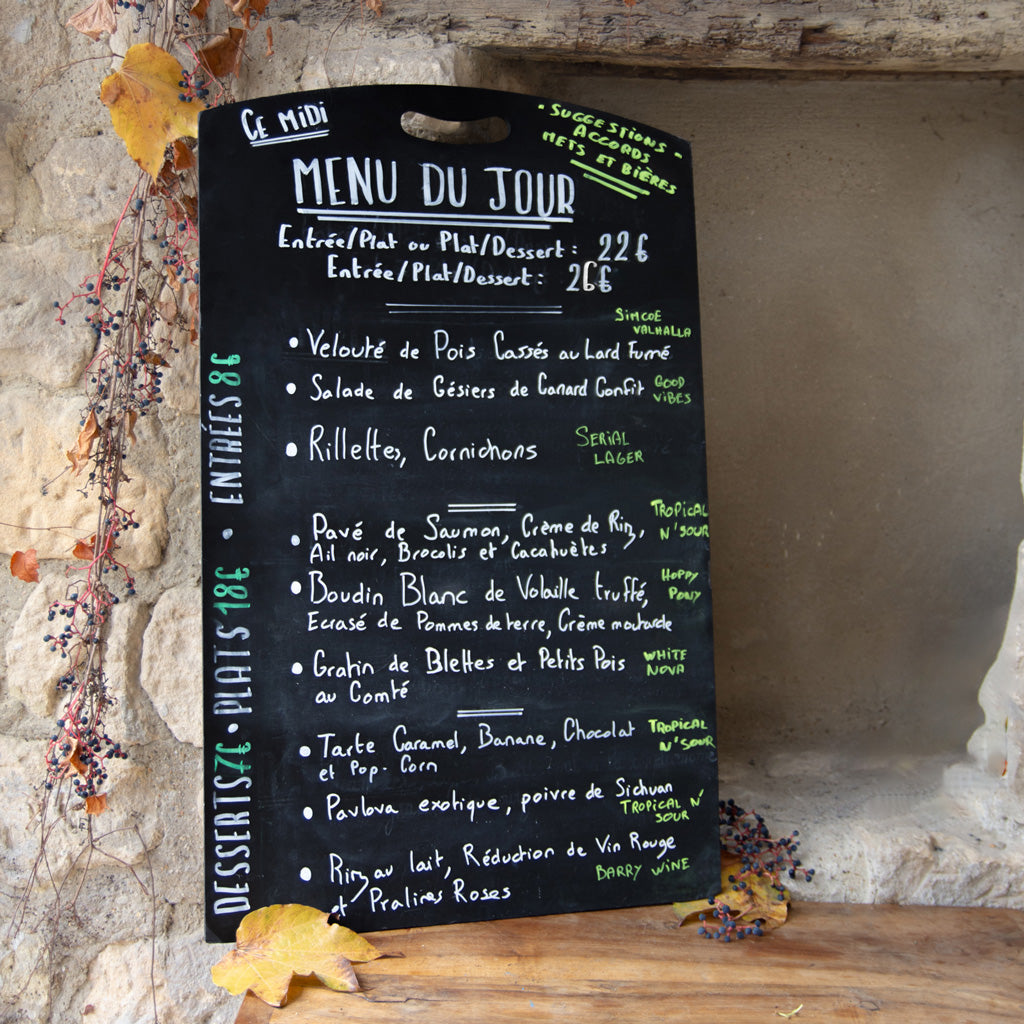 CE MIDI
• SUGGESTIONS
ACCORDS •
METS ET BIÈRES
MENU DU JOUR
Entrée/Plat ou Plat/Dessert : 22€
Entrée/Plat/Dessert : 26€
ENTRÉES 8€
• PLATS 18€
DESSERTS 7€ •
SIMCOE
VALHALLA
• Velouté de Pois Cassés au Lard Fumé
• Salade de Gésiers de Canard Confit
GOOD
VIBES
• Rillettes, Cornichons
SERIAL
LAGER
• Pavé de Saumon, Crème de Riz,
Ail noir, Brocolis et Cacahuètes
TROPICAL
N'SOUR
• Boudin Blanc de Volaille truffé,
Ecrasé de Pommes de terre, Crème moutarde
HOPPY
PONY
• Gratin de Blettes et Petits Pois
au Comté
WHITE
NOVA
• Tarte Caramel, Banane, Chocolat
et Pop-Corn
TROPICAL
N'SOUR
• Pavlova exotique, poivre de Sichuan
TROPICAL N'
SOUR
• Riz au lait, Réduction de Vin Rouge
et Pralines Roses
BARRY WINE